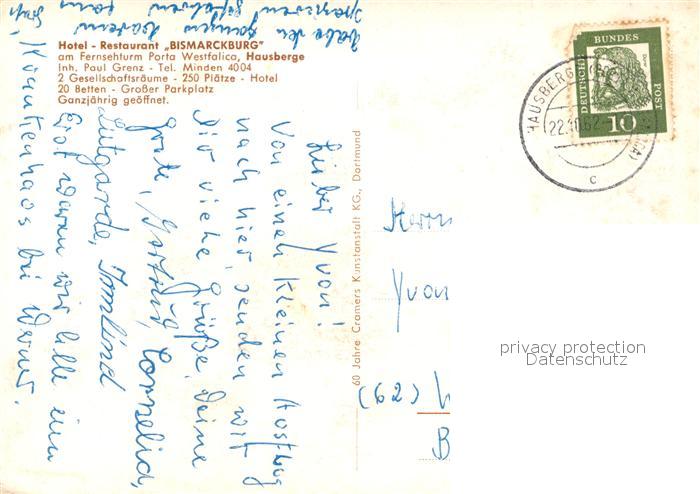 Hotel - Restaurant „BISMARCKBURG"
am Fernsehturm Porta Westfalica, Hausberge
Inh. Paul Grenz - Tel. Minden 4004
2 Gesellschaftsräume - 250 Plätze - Hotel
20 Betten - Großer Parkplatz
Ganzjährig geöffnet.
Lieber Yvon!
Von einen kleinen Ausflug
nach hier, senden wir
Dir viele Grüße, Deine
Grete, Gertrud, Cornelia,
Lutgarde, Irmlind
Erst waren wir alle im
Krankenhaus bei Werner.
60 Jahre Cramers Kunstanstalt KG., Dortmund
Herrn
Yvon
(62)
B
DEUTSCHE BUNDES POST
10
HAUSBERGE
22.10.62
c
privacy protection
Datenschutz